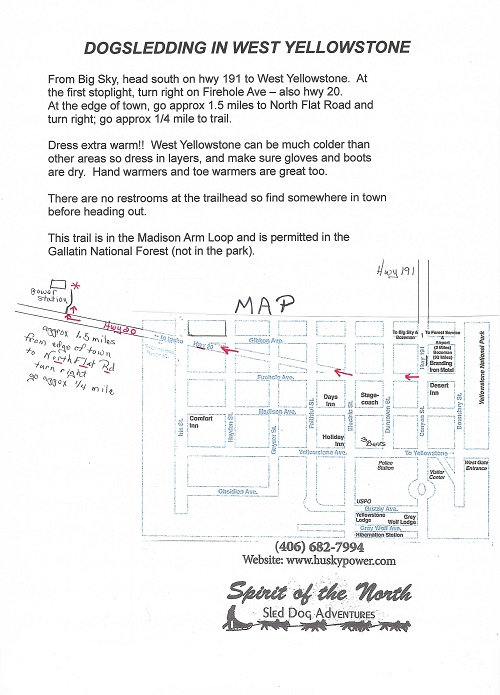 DOGSLEDDING IN WEST YELLOWSTONE
From Big Sky, head south on hwy 191 to West Yellowstone. At
the first stoplight, turn right on Firehole Ave – also hwy 20.
At the edge of town, go approx 1.5 miles to North Flat Road and
turn right; go approx 1/4 mile to trail.
Dress extra warm!! West Yellowstone can be much colder than
other areas so dress in layers, and make sure gloves and boots
are dry. Hand warmers and toe warmers are great too.
There are no restrooms at the trailhead so find somewhere in town
before heading out.
This trail is in the Madison Arm Loop and is permitted in the
Gallatin National Forest (not in the park).
Hwy 191
Power
Station
*
MAP
Hwy 20
approx 1.5 miles
from edge of town
to North Flat Rd
turn right
go approx 1/4 mile
To Idaho
Hwy 20
Gibbon Ave.
To Big Sky &
Bozeman
To Forest Service
&
Airport
(2 Miles)
Bozeman
(90 Miles)
Branding
Iron Motel
Hwy 191
Yellowstone National Park
Firehole Ave.
Days
Inn
Stage-
coach
Desert
Inn
Madison Ave.
Comfort
Inn
Iris St.
Hayden St.
Geyser St.
Faithful St.
Electric St.
Dunraven St.
Canyon St.
Boundary St.
Holiday
Inn
3 Bears
Yellowstone Ave.
To Yellowstone
Police
Station
Visitor
Center
West Gate
Entrance
Obsidian Ave.
USPO
Grizzly Ave.
Yellowstone
Lodge
Grey
Wolf Lodge
Gray Wolf Ave.
Hibernation Station
(406) 682-7994
Website: www.huskypower.com
Spirit of the North
Sled Dog Adventures